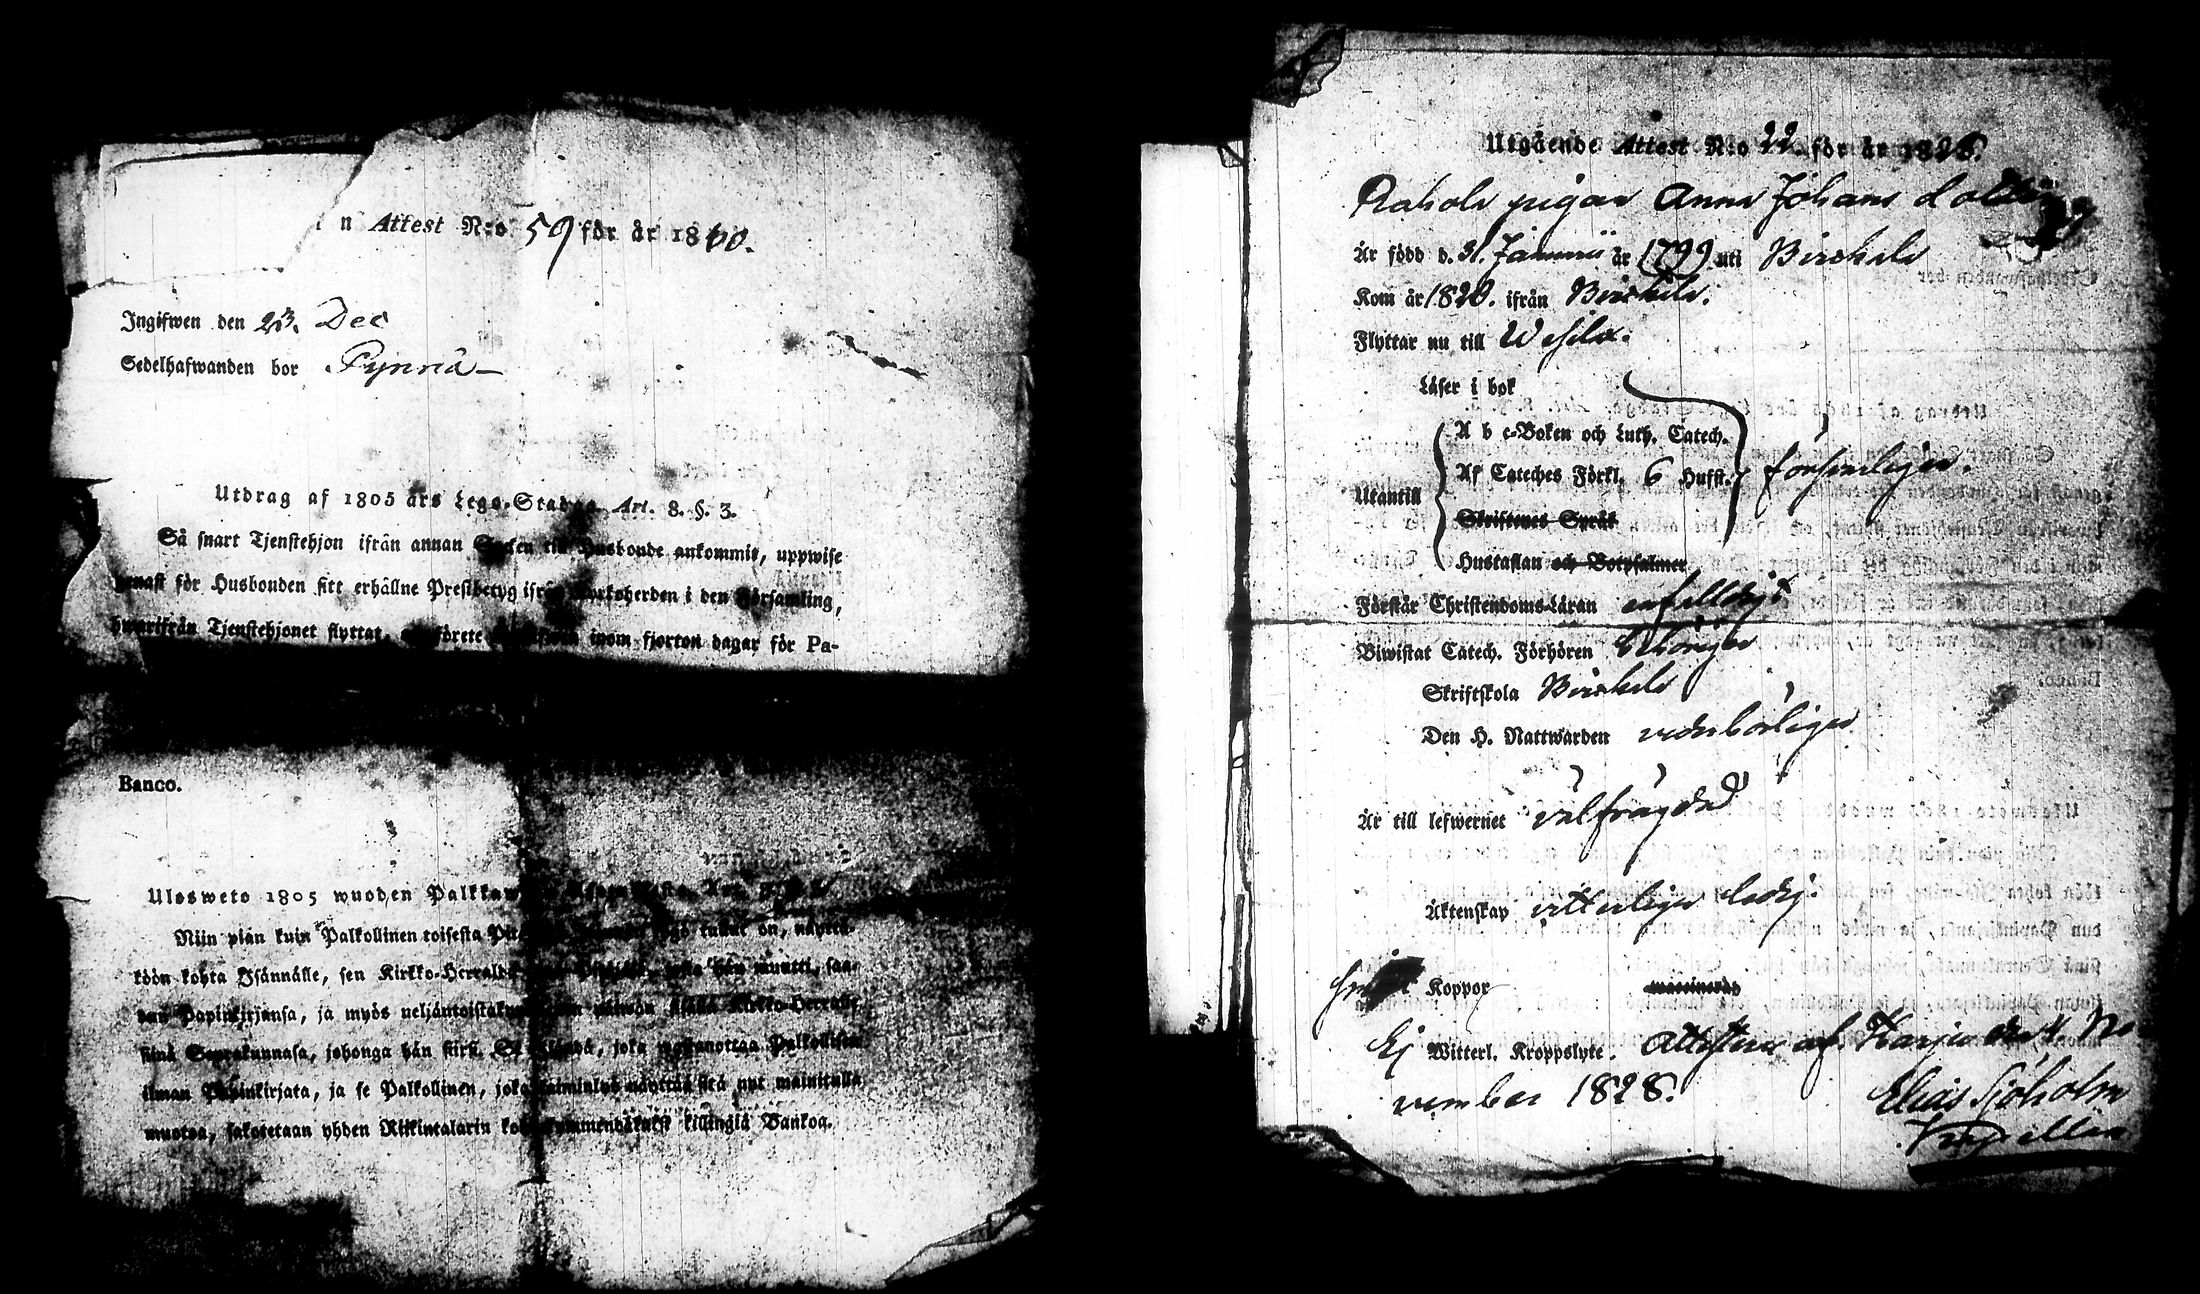 n Attest N:o 59 för år 18
Ingifwen den 23. Dec
Sedelhafwanden bor Pynnä
Utdrag af 1805 års Lego-Stadga Art. 8. §. 3.
Så snart Tjenstehjon ifrån annan Socken till Husbonde ankommit, uppwise
genast för Husbonden sitt erhållne Prestbetyg ifrån Kyrkoherden i den Församling,
hwarifrån Tjenstehjonet flyttat, förete inom fjorton dagar för Pa-
Banco.
Ulosweto 1805 wuoden
Niin pian kuin Palkollinen toisesta tullut on, näyttä-
köön kohta Isännälle, sen Kirkko-Herralda hän muutti, saa-
dun Papinkirjansa, ja myös Kirkko-Herralle
siinä Seurakunnasa, johonga hän siirsi. joka wastanottaa Palkollisen
ilman Papinkirjata, ja se Palkollinen, joka laiminlyö näyttää sitä nyt mainitulla
muotoa, sakotetaan yhden Riikintalarin killingiä Bankoa.
Utgående Attest N:o 22 för år 1828.
pigan Anna Johans
Är född d. 31. Januarii år 1799 uti Birckala
Kom år 1820. ifrån Birckala.
Flyttar nu till Wesilax.
Läser i bok
A b c-Boken och Luth. Catech.
Utantill Af Cateches Förkl. 6 Hufst. försvarligen.
Skriftenes Språk
Hustaflan och Botpsalmer
Förstår Christendoms-Läran enfalldigt
Biwistat Catech. Förhören behörigen
Skriftskola Birckala
Den H. Nattwarden vederbörligen
Är till lefwernet välfrägdad
Äktenskap vitterligen ledig.
Koppor vaccinerad
Ej Witterl. Kroppslyte. Attesteras af Karju den 4. No
vember 1828.
Elias Sjöholm
Kapellan